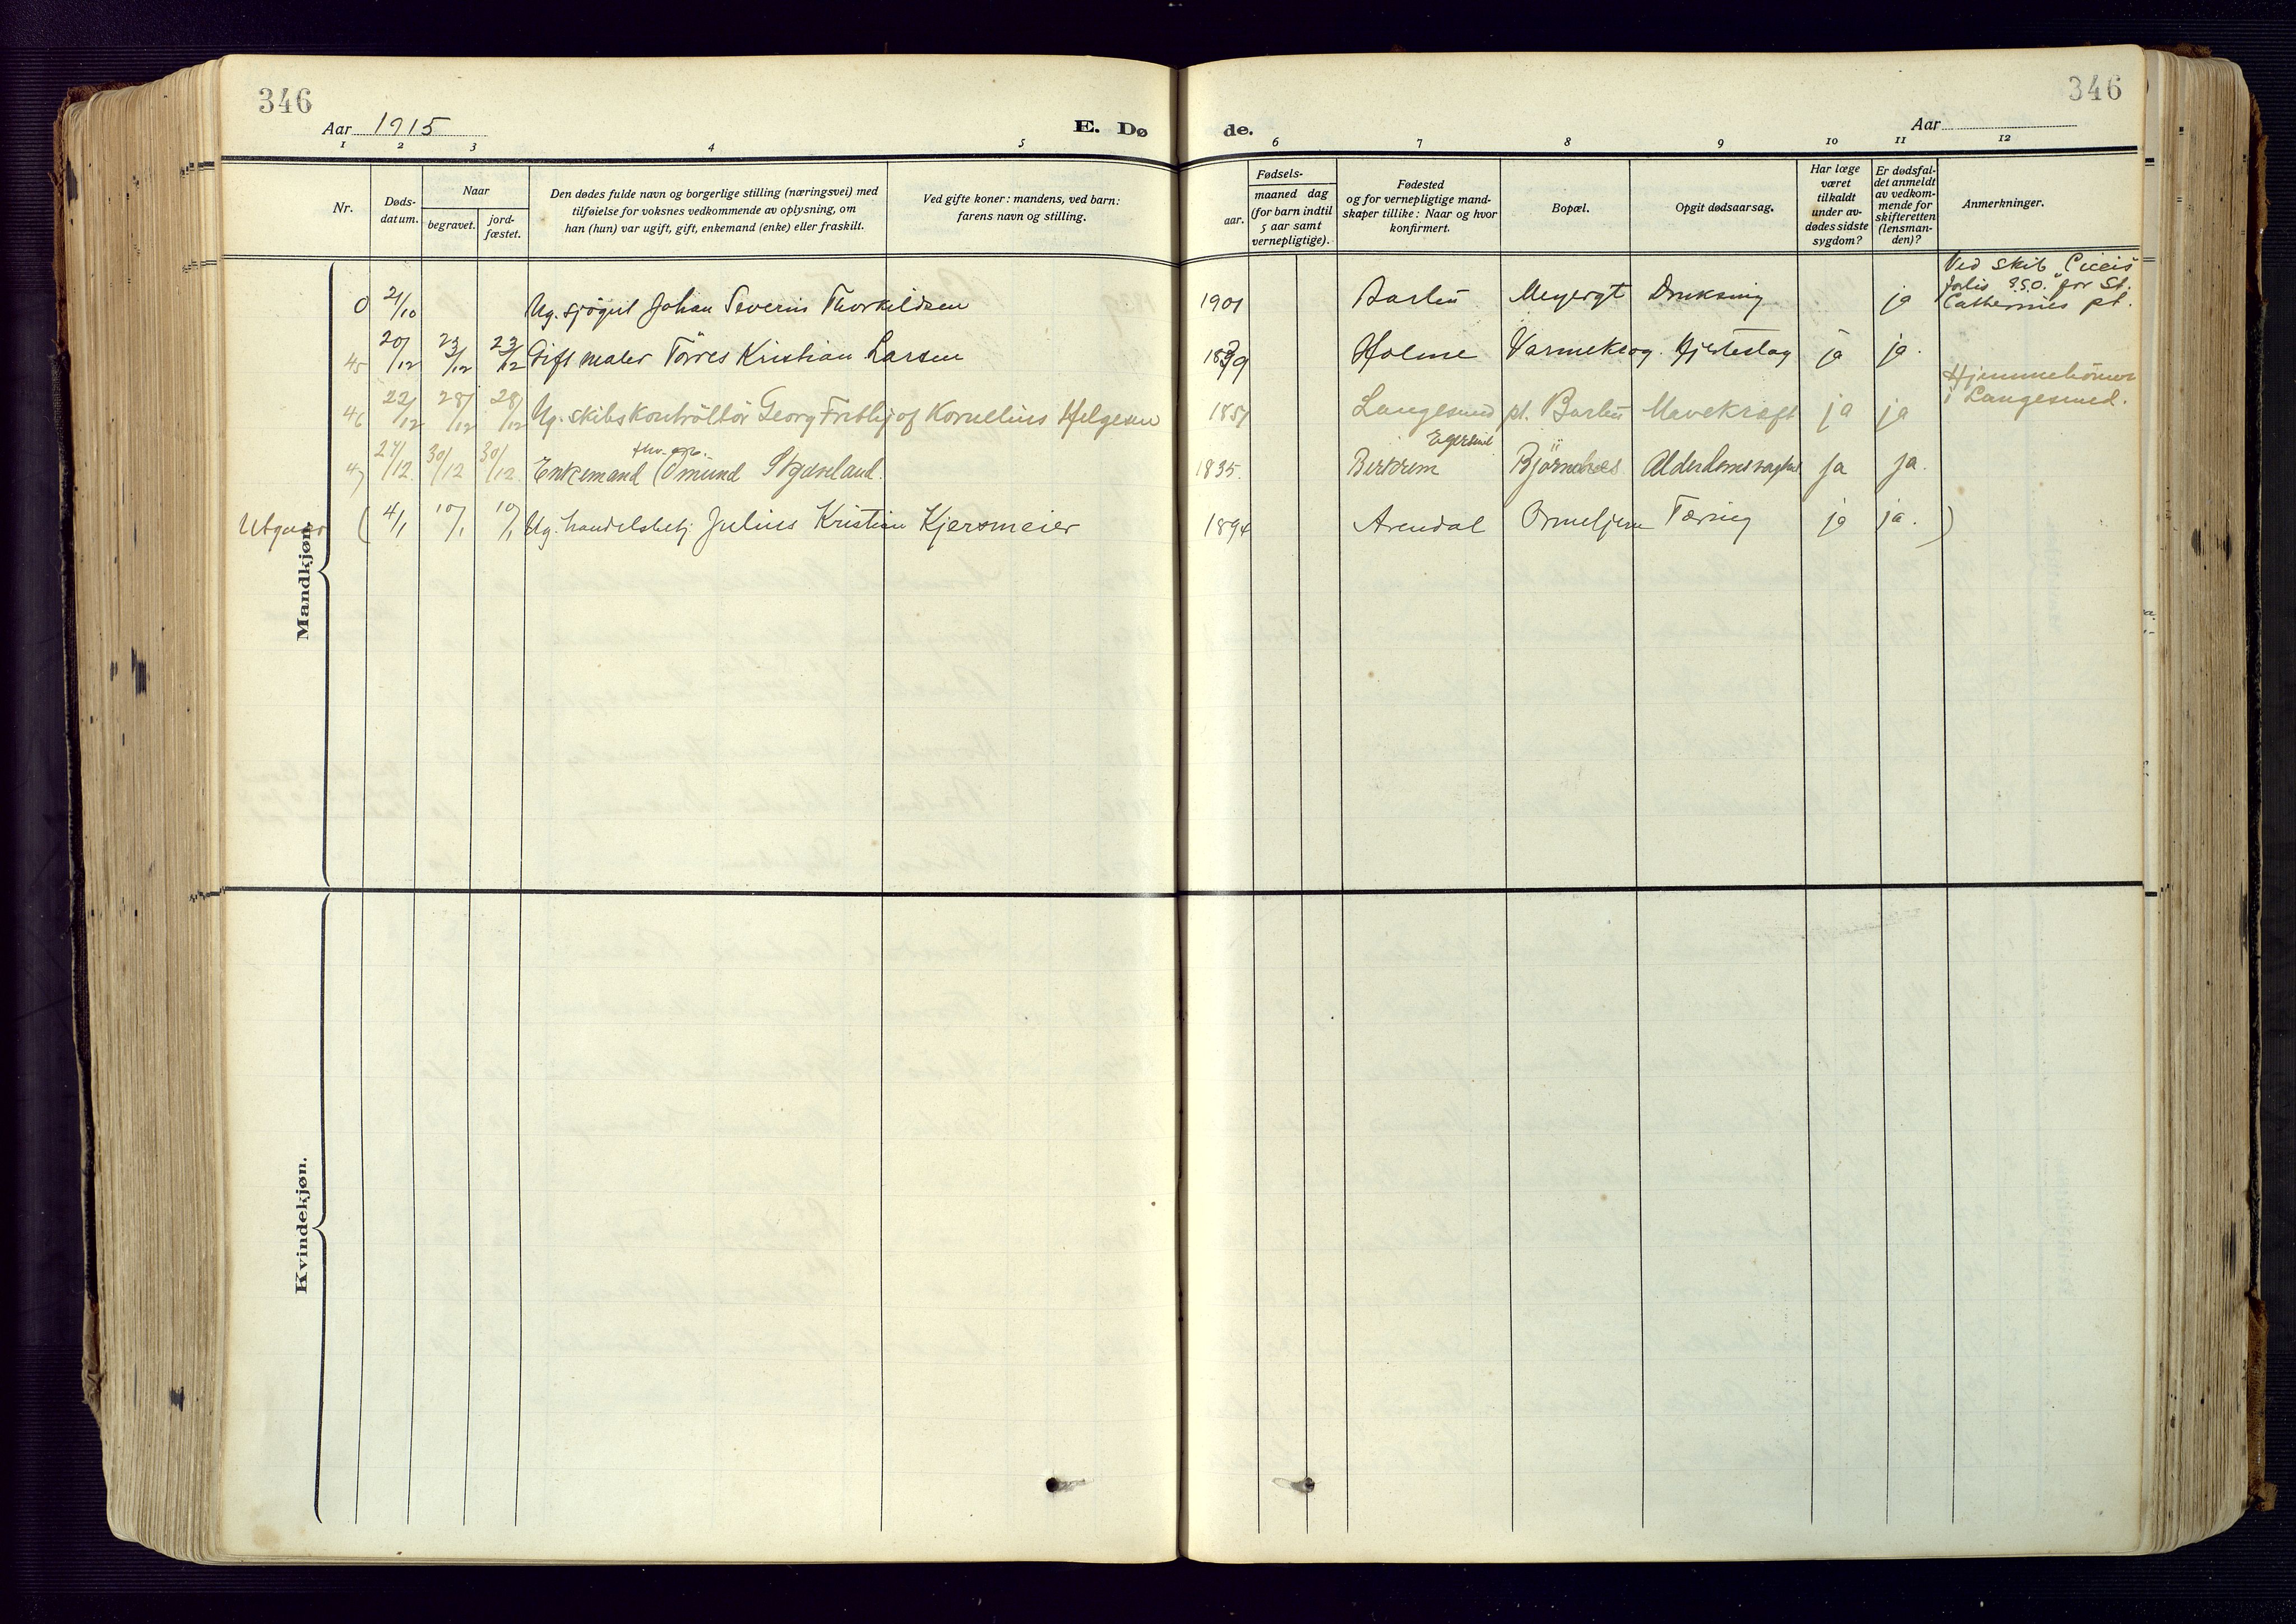 346
346
Aar 1915
E. Dø
de.
Aar
1 2 3 4 5 6 7 8 9 10 11 12
Nr.
Døds-
datum.
Naar
begravet.
jord-
fæstet.
Den dødes fulde navn og borgerlige stilling (næringsvei) med
tilføielse for voksnes vedkommende av oplysning, om
han (hun) var ugift, gift, enkemand (enke) eller fraskilt.
Ved gifte koner: mandens, ved barn:
farens navn og stilling.
Fødsels-
aar.
maaned dag
(for barn indtil
5 aar samt
vernepligtige).
Fødested
og for vernepligtige mand-
skaper tillike: Naar og hvor
konfirmert.
Bopæl.
Opgit dødsaarsag.
Har læge
været
tilkaldt
under av-
dødes sidste
sygdom?
Er dødsfal-
det anmeldt
av vedkom-
mende for
skifteretten
(lensman-
den)?
Anmerkninger.
Mandkjøn.
Ved skib
forlis S.S.O. for St.
Catherines pt.
0 21/10 Ug. sjøgut Johan Severin Thorkildsen 1901 Barbu Drukning ja
45 20/12 23/12 23/12 Gift maler Törres Kristian Larsen Holme Varmekrog. Hjerteslag ja ja.
Hjemmehörende
i Langesund.
46 22/12 28/12 28/12 Ug. skibskontrollör Georg Frithjof Kornelius Helgesen 1857 Langesund pt. Barbu Mavekræft ja ja
Egersund
47 27/12 30/12 30/12 Enkemand Omund 1835. Birkrem Björnebo Alderdomssvaghed ja ja.
Utgaar ( 4/1 10/1 10/1 Ug. handelsbetj. Julius Kristian Kjersmeier 1894 Arendal Tæring ja ja. )
Kvindekjøn.